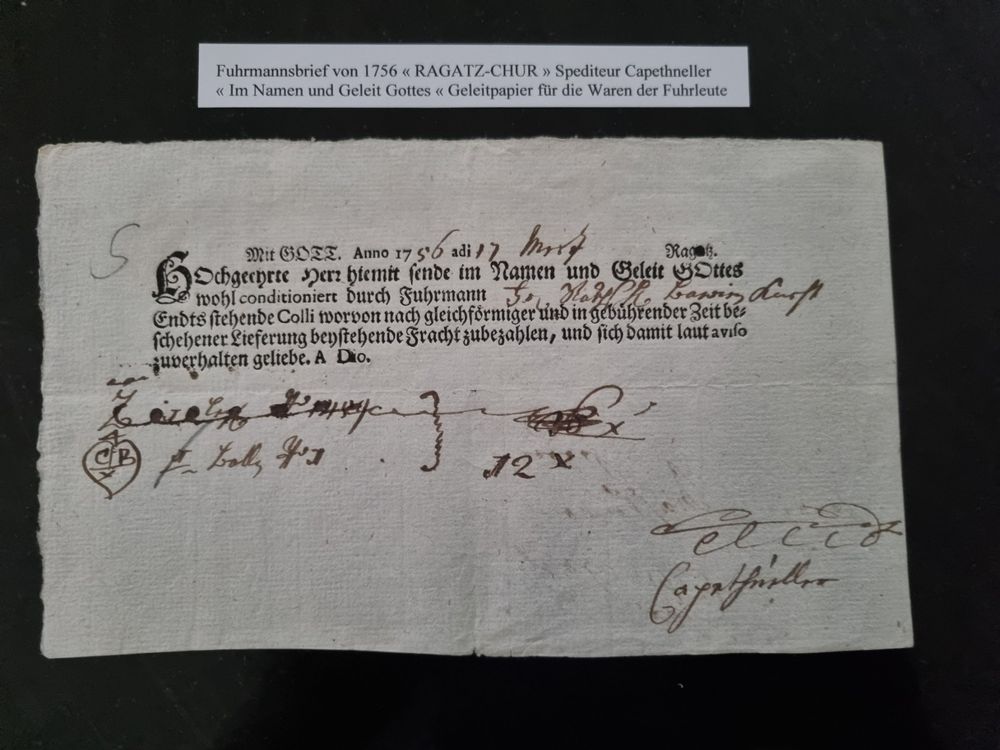 Fuhrmannsbrief von 1756 « RAGATZ-CHUR » Spediteur Capethneller
« Im Namen und Geleit Gottes « Geleitpapier für die Waren der Fuhrleute
Mit GOTT. Anno 1756 adi 17 Ragatz.
HOchgeehrte Herr hiemit sende im Namen und Geleit GOttes
wohl conditioniert durch Fuhrmann
Endts stehende Colli worvon nach gleichförmiger und in gebührender Zeit be-
schehener Lieferung beystehende Fracht zubezahlen, und sich damit laut aviso
zuverhalten geliebe. A Dio.
CB
12 x
Capethneller